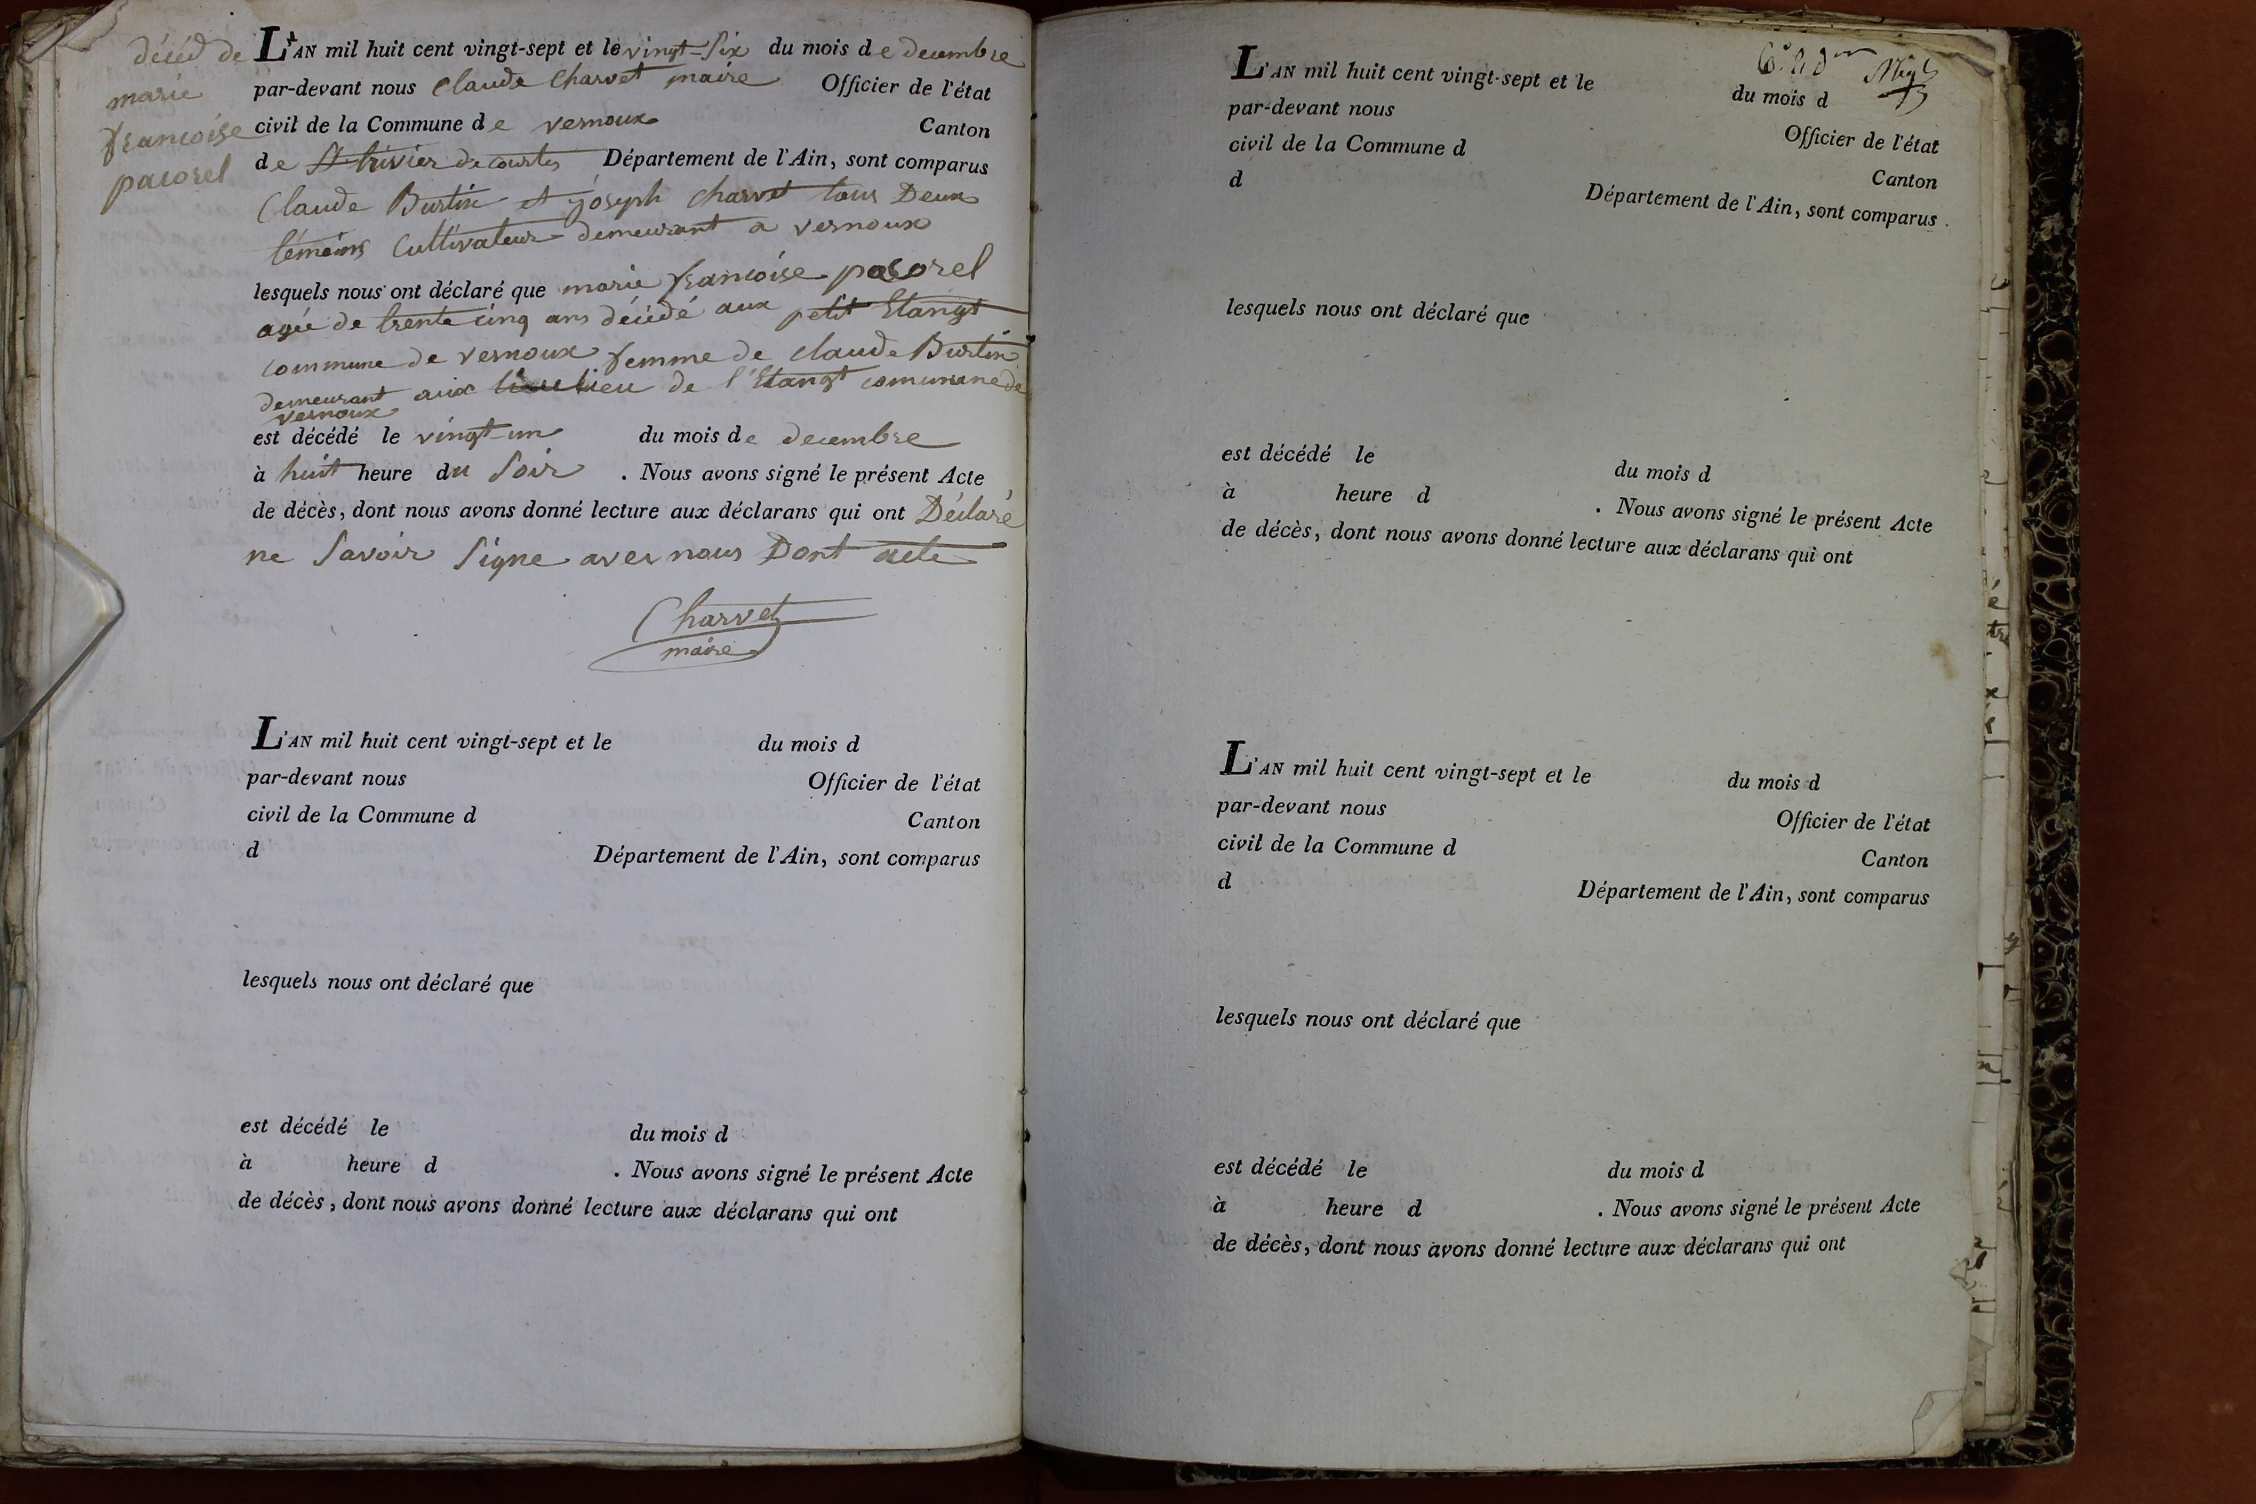 décéd de
marie
francoise
pacorel
L'AN mil huit cent vingt-sept et le vingt-six du mois de decembre
par-devant nous Claude Charvet maire Officier de l'état
civil de la Commune de vernoux Canton
de St trivier de courtes Département de l'Ain, sont comparus
Claude Burtin et joseph charvet tous Deux
témoins Cultivateur demeurant a vernoux
lesquels nous ont déclaré que marie francoise pacorel
agée de trente cinq ans décédé aux petit Etangt
commune de vernoux femme de claude Burtin
demeurant aux lieu de l'Etangt commune de
vernoux
est décédé le vingt-un du mois de decembre
à huit heure du Soir . Nous avons signé le présent Acte
de décès, dont nous avons donné lecture aux déclarans qui ont Déclaré
ne Savoir Signe avec nous Dont acte
Charvet
maire
L'AN mil huit cent vingt-sept et le du mois d
par-devant nous Officier de l'état
civil de la Commune d Canton
d Département de l'Ain, sont comparus
lesquels nous ont déclaré que
est décédé le du mois d
à heure d . Nous avons signé le présent Acte
de décès, dont nous avons donné lecture aux déclarans qui ont
L'AN mil huit cent vingt-sept et le du mois d
par-devant nous Officier de l'état
civil de la Commune d Canton
d Département de l'Ain, sont comparus.
lesquels nous ont déclaré que
est décédé le du mois d
à heure d . Nous avons signé le présent Acte
de décès, dont nous avons donné lecture aux déclarans qui ont
L'AN mil huit cent vingt-sept et le du mois d
par-devant nous Officier de l'état
civil de la Commune d Canton
d Département de l'Ain, sont comparus
lesquels nous ont déclaré que
est décédé le du mois d
à heure d . Nous avons signé le présent Acte
de décès, dont nous avons donné lecture aux déclarans qui ont